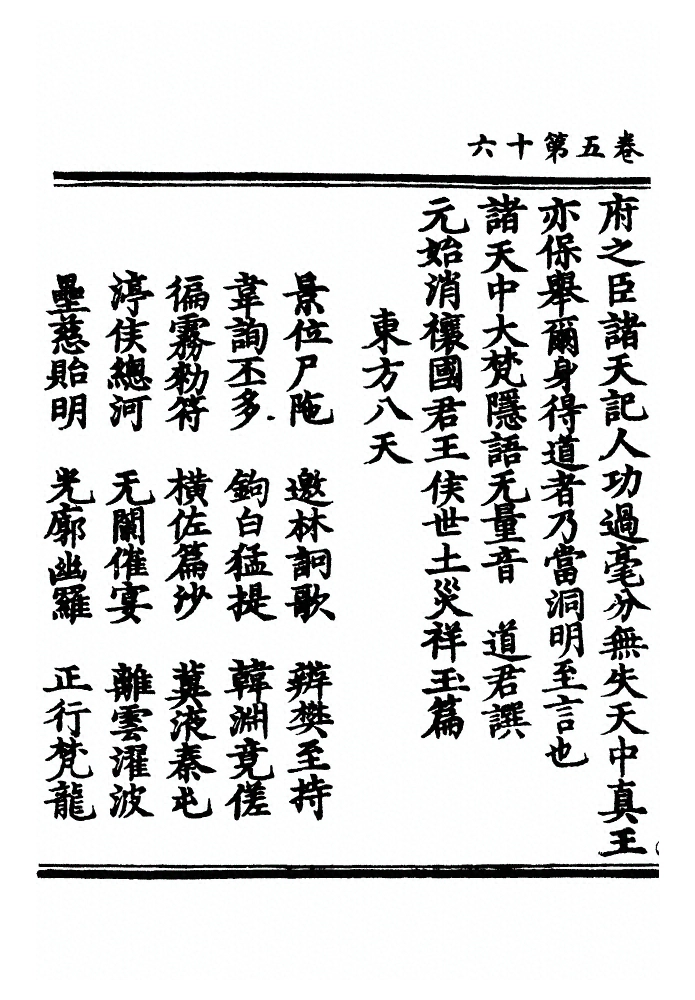 卷五第十六
府之臣諸天記人功過毫分無失天中真王
亦保舉爾身得道者乃當洞明至言也
諸天中大梵隱語无量音　道君譔
元始消禳國君王侯世土災祥玉篇
東方八天
景位尸陁　邀林訶歌　辨樊至持
韋詢丕多　鉤白猛提　韓淵竟傞
徧霧勑符　橫佐篇沙　蓂液秦屯
渟侯總河　无關催宴　離雲濯波
壘慈貽明　光廓幽羅　正行梵龍